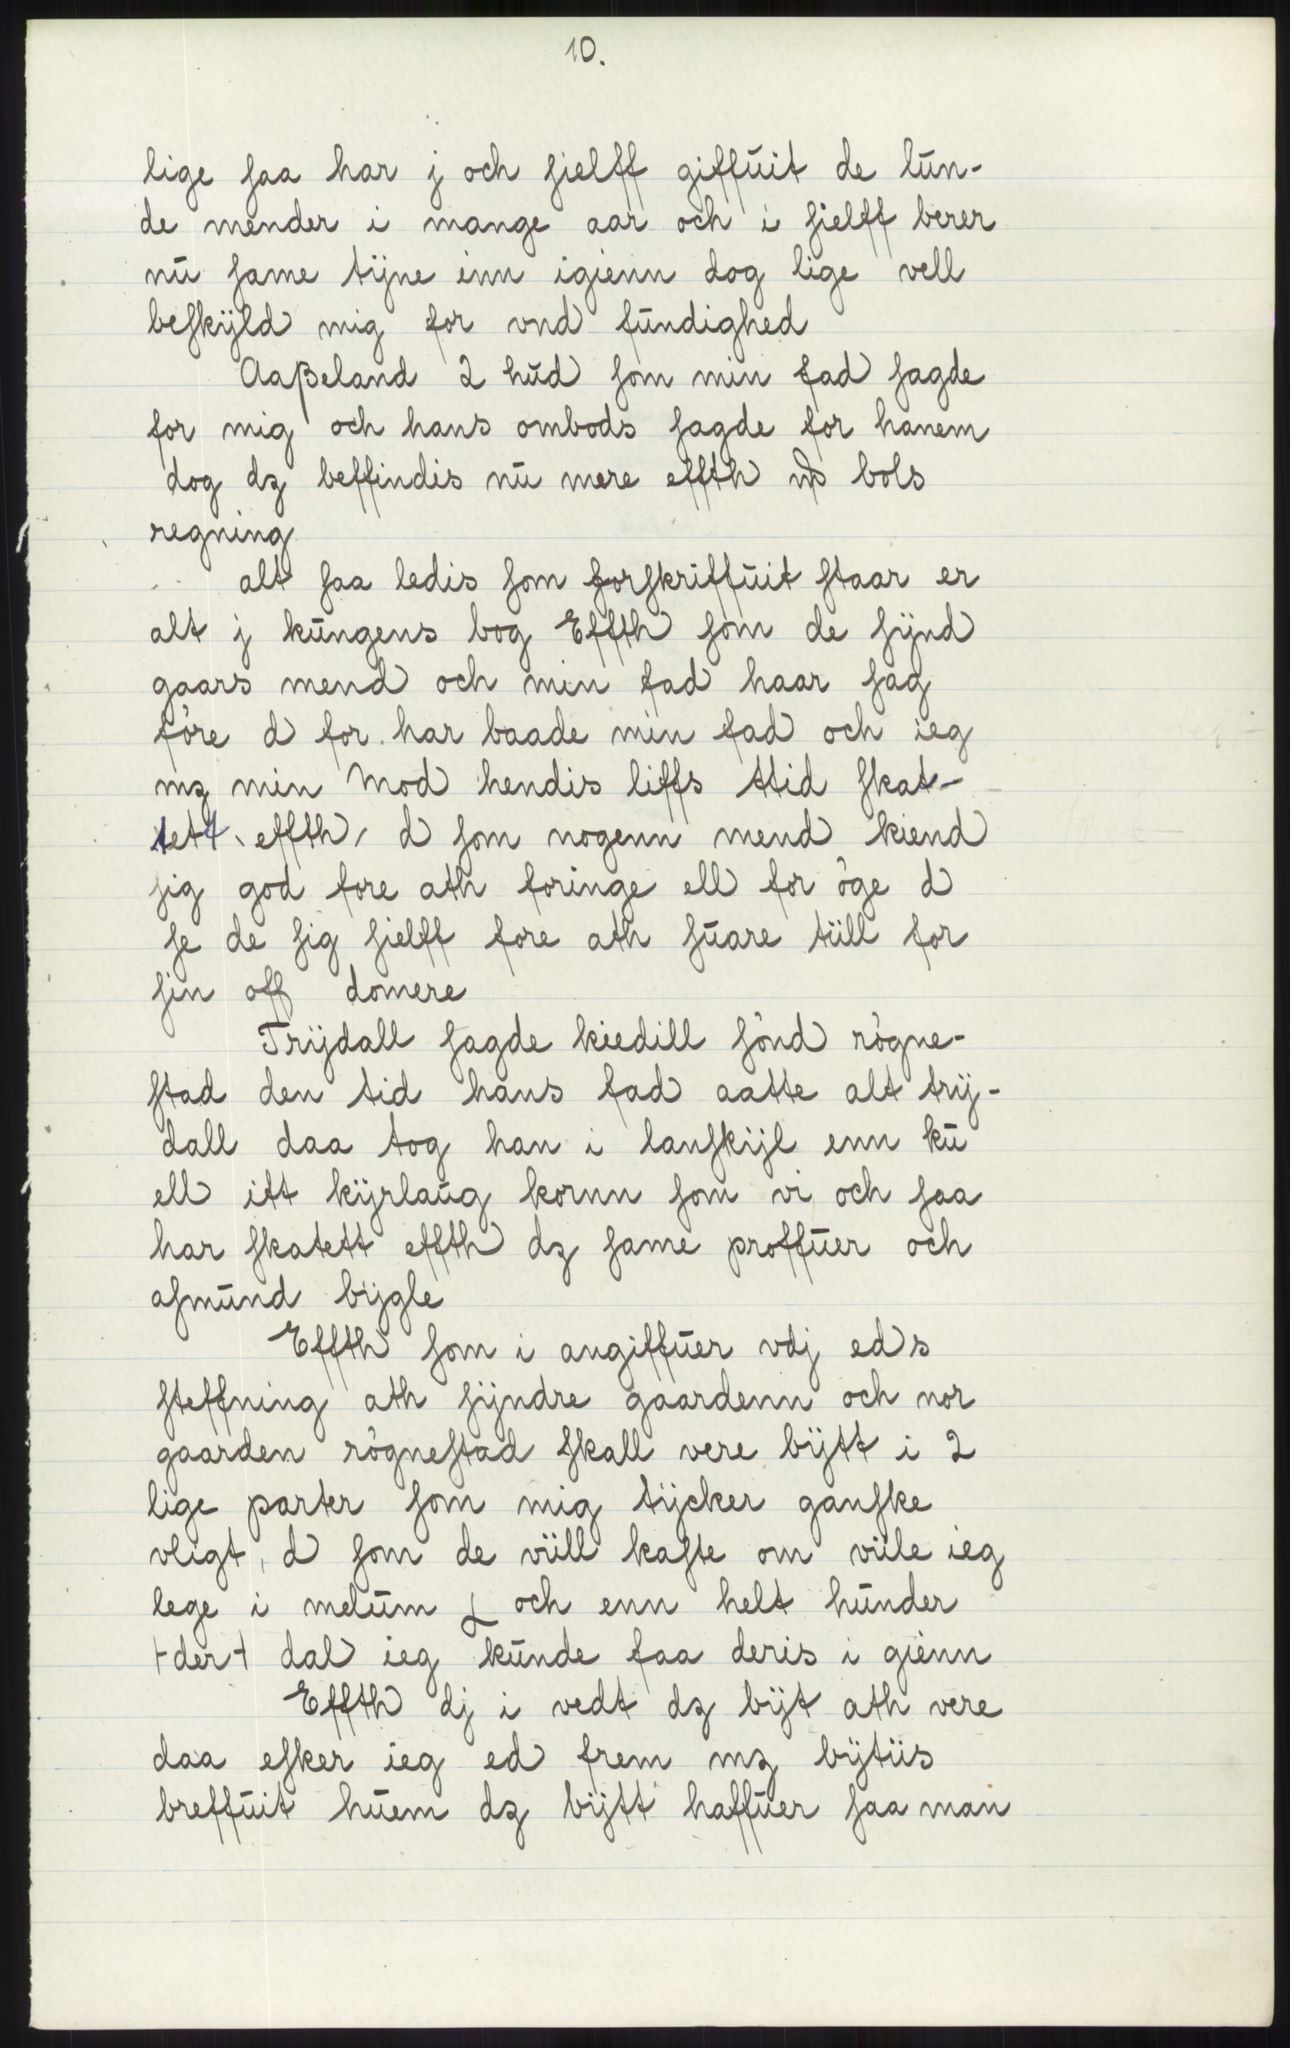 10.
lige saa har j och sielff giffuit de lun-
de mender i mange aar och i sielff berer
nu same tijne inn igienn dog lige vell
beskijld mig for vnd fundighed
Aaßeland 2 hud som min fad sagde
for mig och hans ombods sagde for hanem
dog dz beffindis nu mere effth bols
regning
alt saa ledis som forskriffuit staar er
alt j kungens bog Effth som de sijnd
gaars mend och min fad haar sag
före d for har baade min fad och ieg
mz min mod hendis liffs ttid skat-
tett effth d som nogenn mend kiend
sig god fore ath foringe ell for öge d
se de sig sielff fore ath suare tüll for
sin off domere
Trijdall sagde kiedill sönd rögne-
stad den tid hans fad aatte alt trij-
dall daa tog han i lanskijl enn ku
ell itt kijrlaug kornn som vi och saa
har skatett effth dz same proffuer och
asmund bijgle
Effth som i angiffuer vdj eds
steffning ath sijndre gaardenn och nor
gaarden rögnestad skall vere bijtt i 2
lige parter som mig tijcker ganske
vligt, d som de vüll kaste om vüle ieg
lege i melum och enn helt hunder
+der+ dal ieg kunde faa deris i gienn
Effth dj i vedt dz bijt ath vere
daa esker ieg ed frem mz bijtüs
breffuit huem dz bijtt haffuer saa man